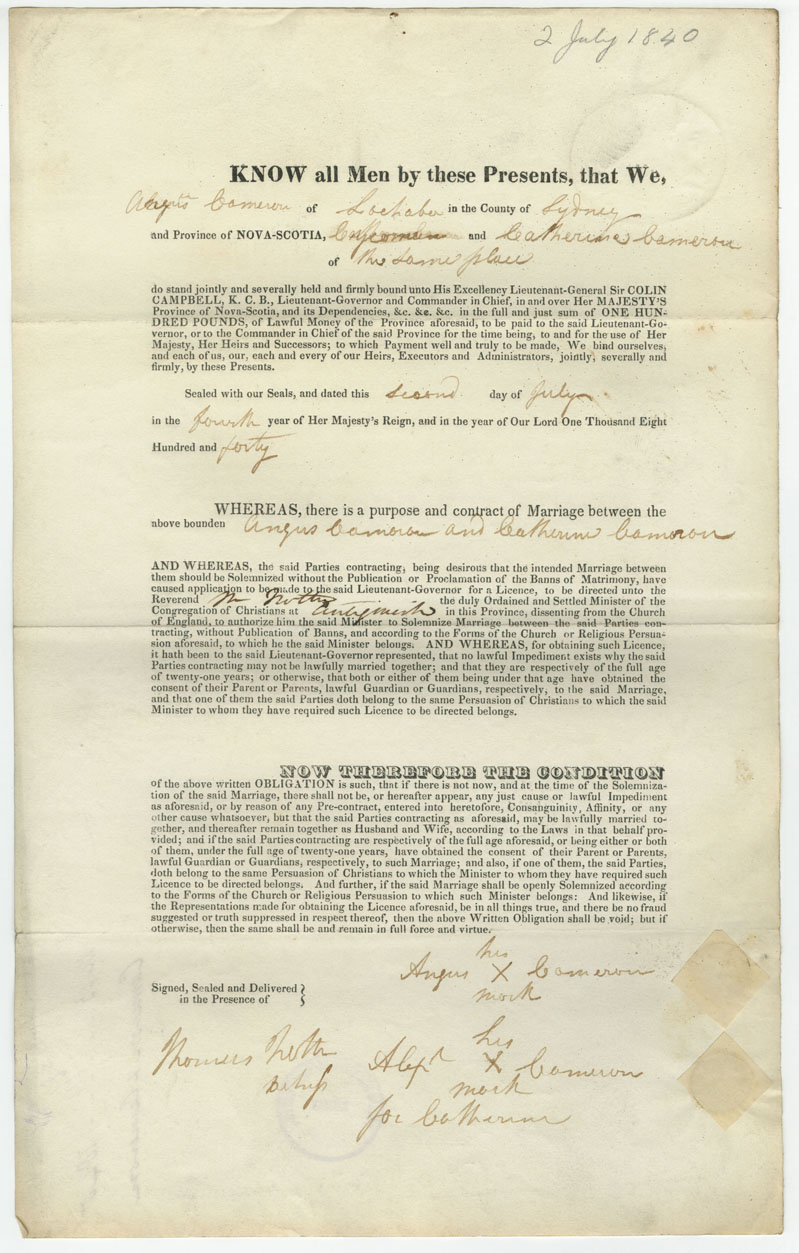 2 July 1840
KNOW all Men by these Presents, that We,
Angus Cameron of Lochaber in the County of Sydney
and Province of NOVA-SCOTIA, and Catherine Cameron
of the same place
do stand jointly and severally held and firmly bound unto His Excellency Lieutenant-General Sir COLIN
CAMPBELL, K. C. B., Lieutenant-Governor and Commander in Chief, in and over Her MAJESTY'S
Province of Nova-Scotia, and its Dependencies, &c. &c. &c. in the full and just sum of ONE HUN-
DRED POUNDS, of Lawful Money of the Province aforesaid, to be paid to the said Lieutenant-Go-
vernor, or to the Commander in Chief of the said Province for the time being, to and for the use of Her
Majesty, Her Heirs and Successors; to which Payment well and truly to be made, We bind ourselves,
and each of us, our, each and every of our Heirs, Executors and Administrators, jointly, severally and
firmly, by these Presents.
Sealed with our Seals, and dated this second day of July
in the fourth year of Her Majesty's Reign, and in the year of Our Lord One Thousand Eight
Hundred and forty
WHEREAS, there is a purpose and contract of Marriage between the
above bounden Angus Cameron and Catherine Cameron
AND WHEREAS, the said Parties contracting, being desirous that the intended Marriage between
them should be Solemnized without the Publication or Proclamation of the Banns of Matrimony, have
caused application to be made to the said Lieutenant-Governor for a Licence, to be directed unto the
Reverend Mr Trotter the duly Ordained and Settled Minister of the
Congregation of Christians at Antigonish in this Province, dissenting from the Church
of England, to authorize him the said Minister to Solemnize Marriage between the said Parties con-
tracting, without Publication of Banns, and according to the Forms of the Church or Religious Persua-
sion aforesaid, to which he the said Minister belongs. AND WHEREAS, for obtaining such Licence,
it hath been to the said Lieutenant-Governor represented, that no lawful Impediment exists why the said
Parties contracting may not be lawfully married together; and that they are respectively of the full age
of twenty-one years; or otherwise, that both or either of them being under that age have obtained the
consent of their Parent or Parents, lawful Guardian or Guardians, respectively, to the said Marriage,
and that one of them the said Parties doth belong to the same Persuasion of Christians to which the said
Minister to whom they have required such Licence to be directed belongs.
NOW THEREFORE THE CONDITION
of the above written OBLIGATION is such, that if there is not now, and at the time of the Solemniza-
tion of the said Marriage, there shall not be, or hereafter appear, any just cause or lawful Impediment
as aforesaid, or by reason of any Pre-contract, entered into heretofore, Consanguinity, Affinity, or any
other cause whatsoever, but that the said Parties contracting as aforesaid, may be lawfully married to-
gether, and thereafter remain together as Husband and Wife, according to the Laws in that behalf pro-
vided; and if the said Parties contracting are respectively of the full age aforesaid, or being either or both
of them, under the full age of twenty-one years, have obtained the consent of their Parent or Parents,
lawful Guardian or Guardians, respectively, to such Marriage; and also, if one of them, the said Parties,
doth belong to the same Persuasion of Christians to which the Minister to whom they have required such
Licence to be directed belongs. And further, if the said Marriage shall be openly Solemnized according
to the Forms of the Church or Religious Persuasion to which such Minister belongs: And likewise, if
the Representations made for obtaining the Licence aforesaid, be in all things true, and there be no fraud
suggested or truth suppressed in respect thereof, then the above Written Obligation shall be void; but if
otherwise, then the same shall be and remain in full force and virtue.
his
Angus X Cameron
mark
Signed, Sealed and Delivered
in the Presence of
Thomas Trotter
Witness
his
Alexr X Cameron
mark
for Catherine